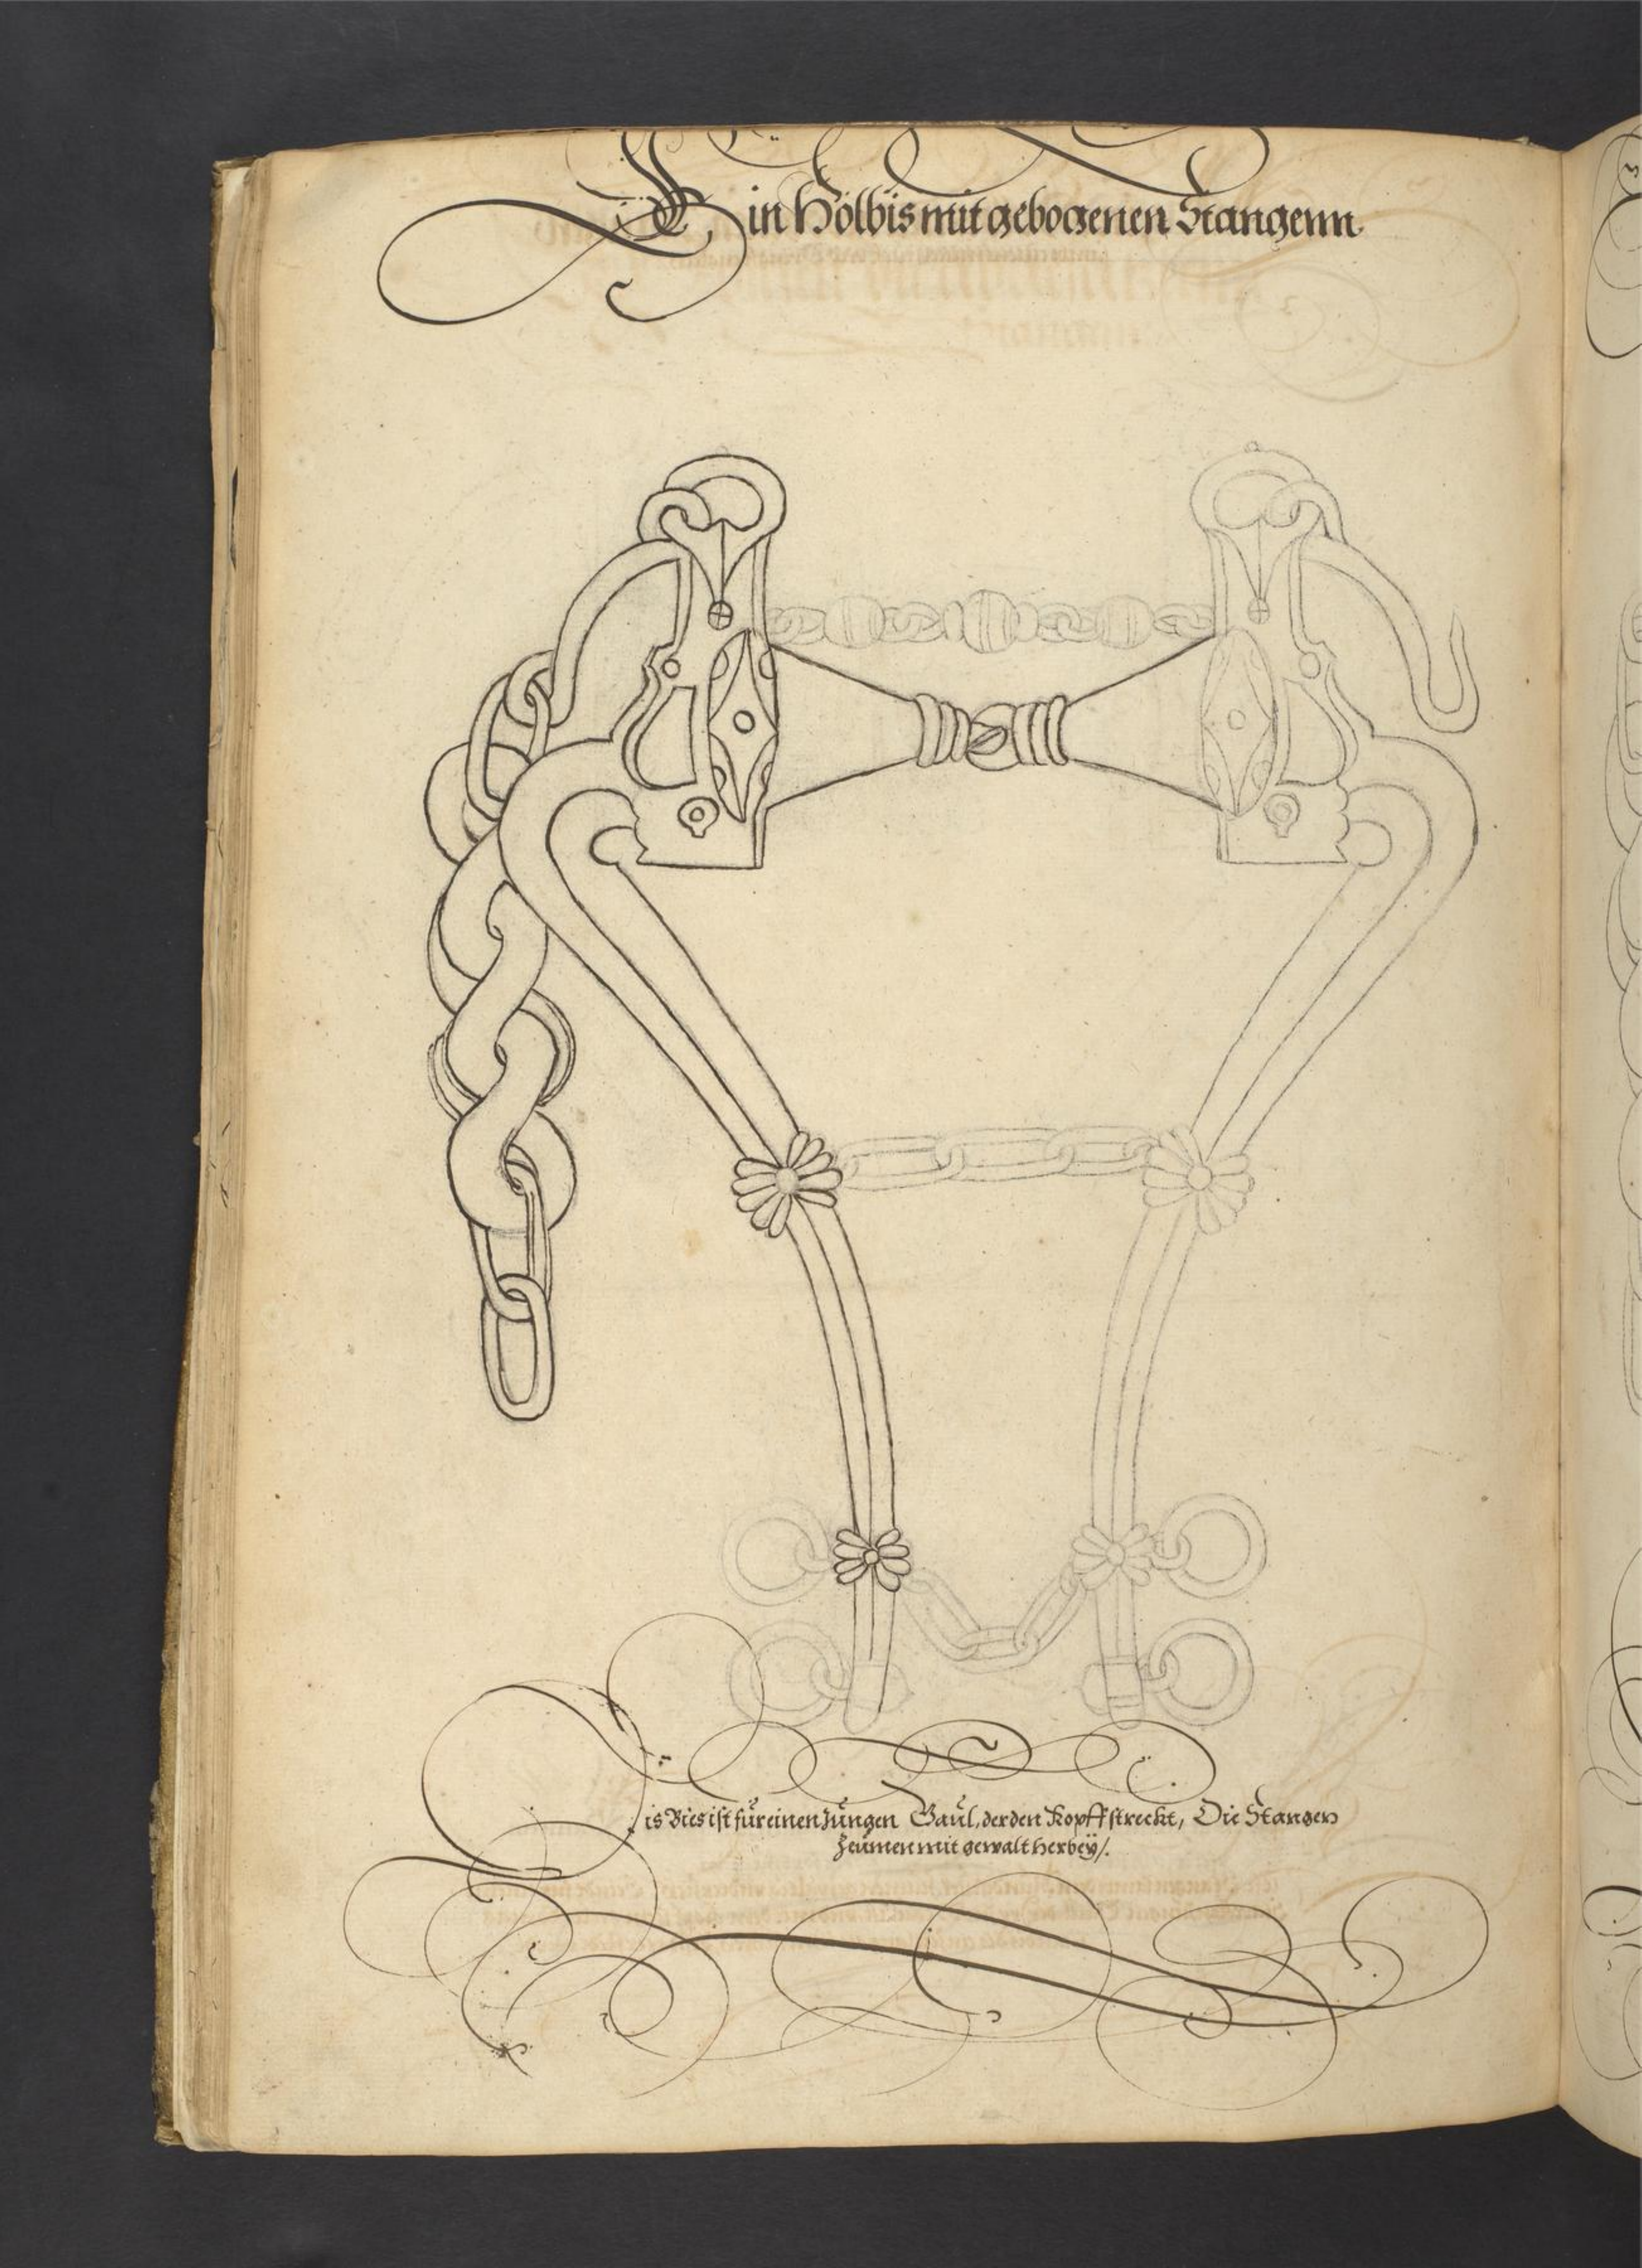 Ein Holbis mit gebogenen Stangenn.
Dis Bies ist für einen Jungen Gaul, der den Kopff streckt, Die Stangen
Zeümen mit gewalt herbeÿ/.